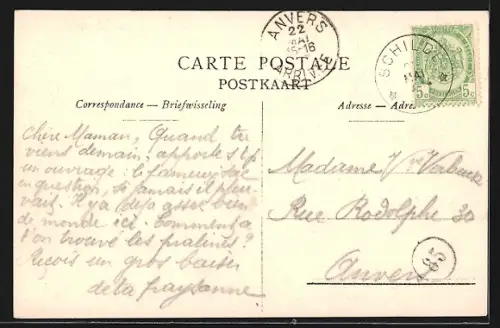 ANVERS
22
MAI
15-16
ARRIVÉE
CARTE POSTALE
POSTKAART
SCHILDE
MAI
5c 5c
Correspondance — Briefwisseling
Adresse — Adres
Chère Maman, Quand tu
viens demain, apporte s t p
un ouvrage: le fameux sac
en question, si jamais il pleu-
vait. Il y a déjà assez bien
de monde ici. Comment a
t'on trouvé les pralines?
Reçois un gros baiser
de ta paysanne
Madame Vve Verbeeck
Rue Rodolphe 30
Anvers